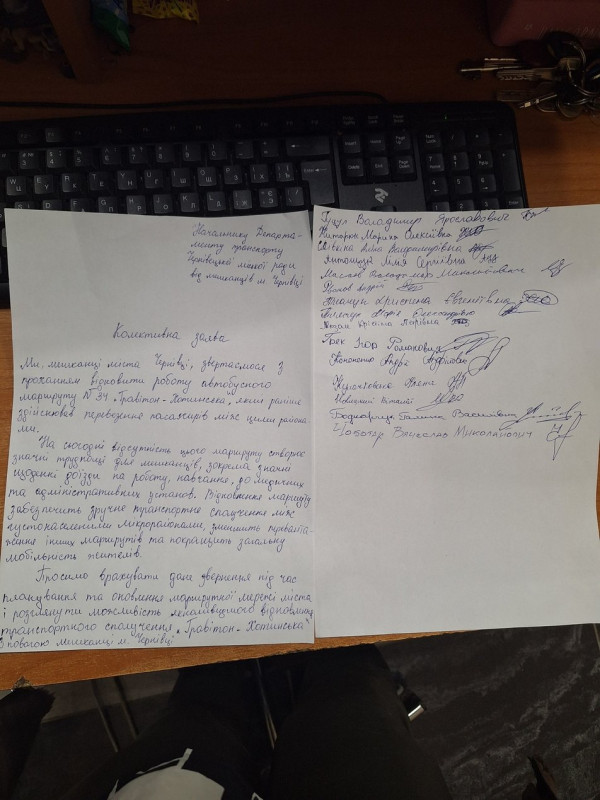 Начальнику Департа-
менту транспорту
Чернівецької міської ради
від мешканців м. Чернівці
Колективна заява
Ми, мешканці міста Чернівці, звертаємося з
проханням відновити роботу автобусного
маршруту N 34 „Гравітон-Хотинська", який раніше
здійснював перевезення пасажирів між цими района-
ми.
На сьогодні відсутність цього маршруту створює
значні труднощі для мешканців, зокрема
щоденні доїзди на роботу, навчання, до медичних
та адміністративних установ. Відновлення маршруту
забезпечить зручне транспортне сполучення між
густонаселеними мікрорайонами, зменшить переванта-
ження інших маршрутів та покращить загальну
мобільність жителів.
Просимо врахувати дане звернення під час
планування та оновлення маршрутної мережі міста
і розглянути можливість якнайшвидшого відновлення
транспортного сполучення „Гравітон-Хотинська"
З повагою мешканці м. Чернівці
Володимир Ярославович
Марина Олексіївна
Аліна
Лілія Сергіївна
Володимир
Андрій
Христина Євгеніївна
Юрій Олександрович
Ігор Романович
Боднарюк Галина Василівна
Вячеслав Миколайович